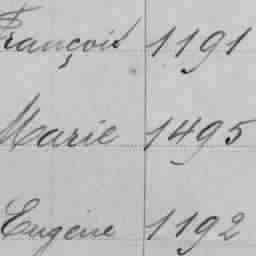 François 1191
Marie 1495
Eugène 1192